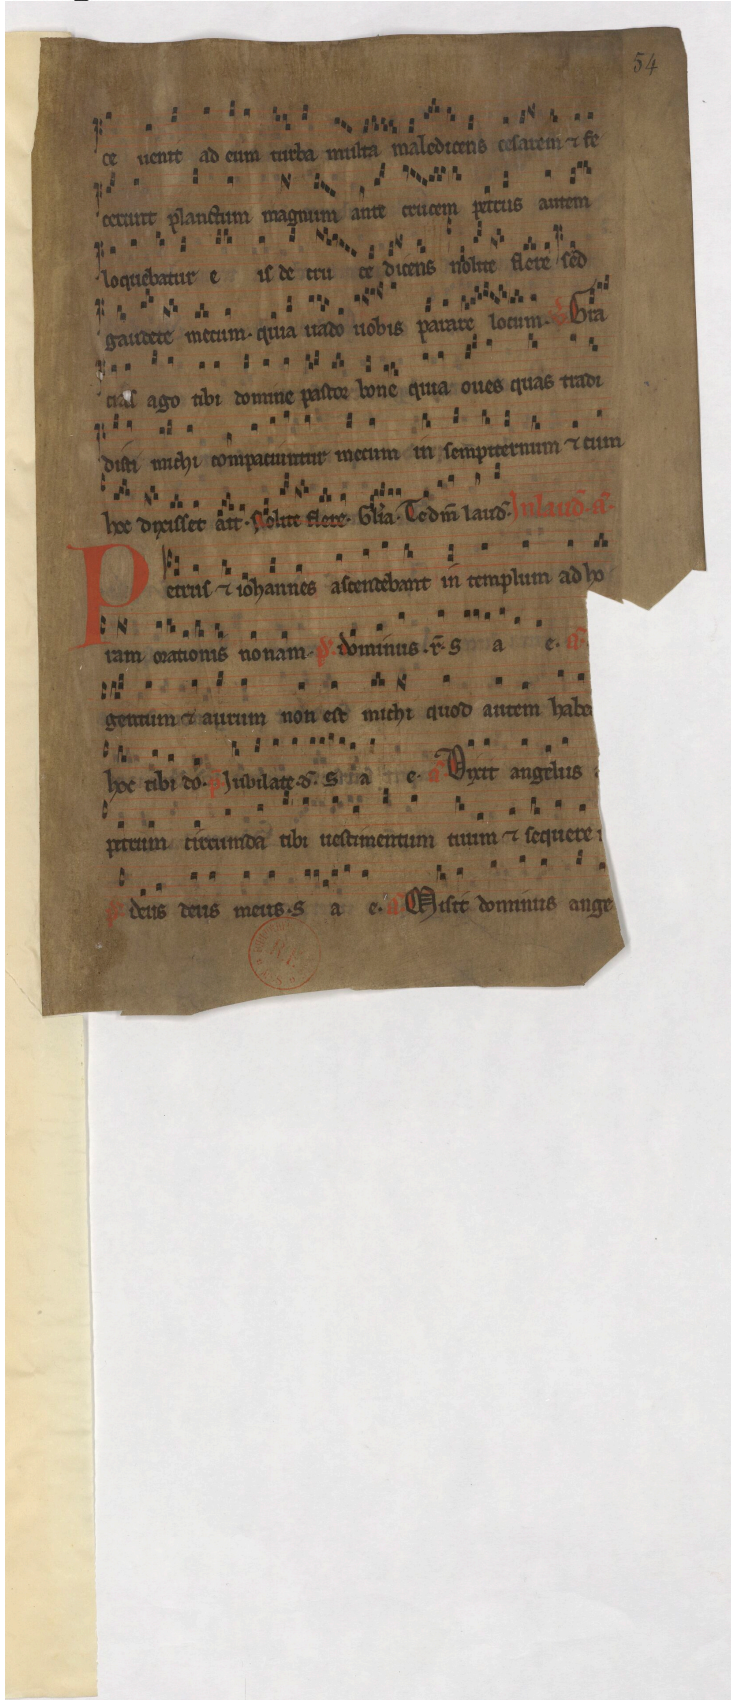 54
ce uenit ad eum turba multa maledicens cesarem ⁊ fe
cerunt planctum magnum ante crucem petrus autem
loquebatur e is de cru ce dicens nolite flere sed
gaudete mecum · quia uado uobis parare locum · Gra
cias ago tibi domine pastor bone quia oues quas tradi
disti michi compaciuntur mecum in sempiternum ⁊ cum
hoc dixisset ait · Nolite flere · Gl̄ia · Te dm̄ laud̄ · In laud̄ · a̅ ·
Petrus ⁊ iohannes ascendebant in templum ad ho
ram orationis nonam · p̄s · dominus · r̄ · S a e · a̅ ·
gentum ⁊ aurum non est michi quod autem habe
hoc tibi do · p̄s Iubilate · d̄ · S a e · a̅ Dixit angelus
petrum circumda tibi uestimentum tuum ⁊ sequere
p̄s deus deus meus · S a e · a̅ Misit dominus ange